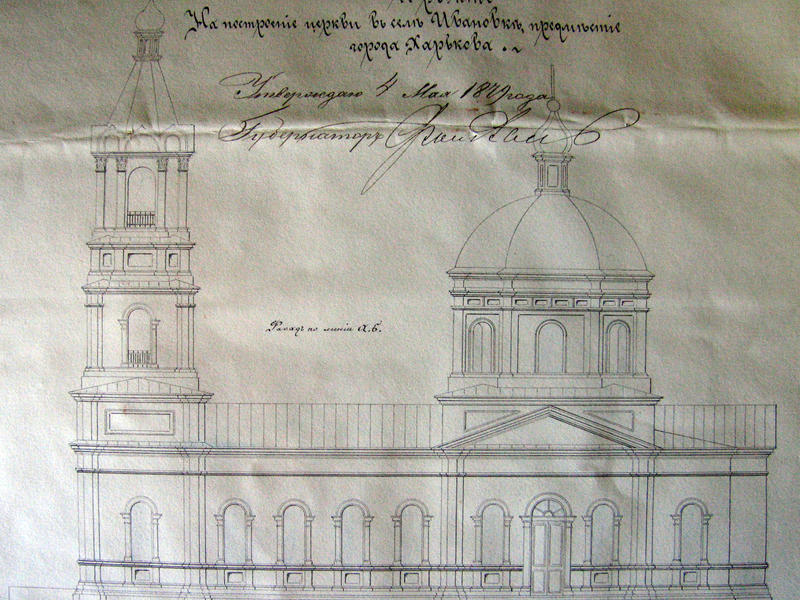 На построеніе церкви въ селѣ Ивановкѣ, предмѣстіе
города Харькова.
Утверждаю 4 Мая 1879 года
Губернаторъ
Фасадъ по линіи А.Б.